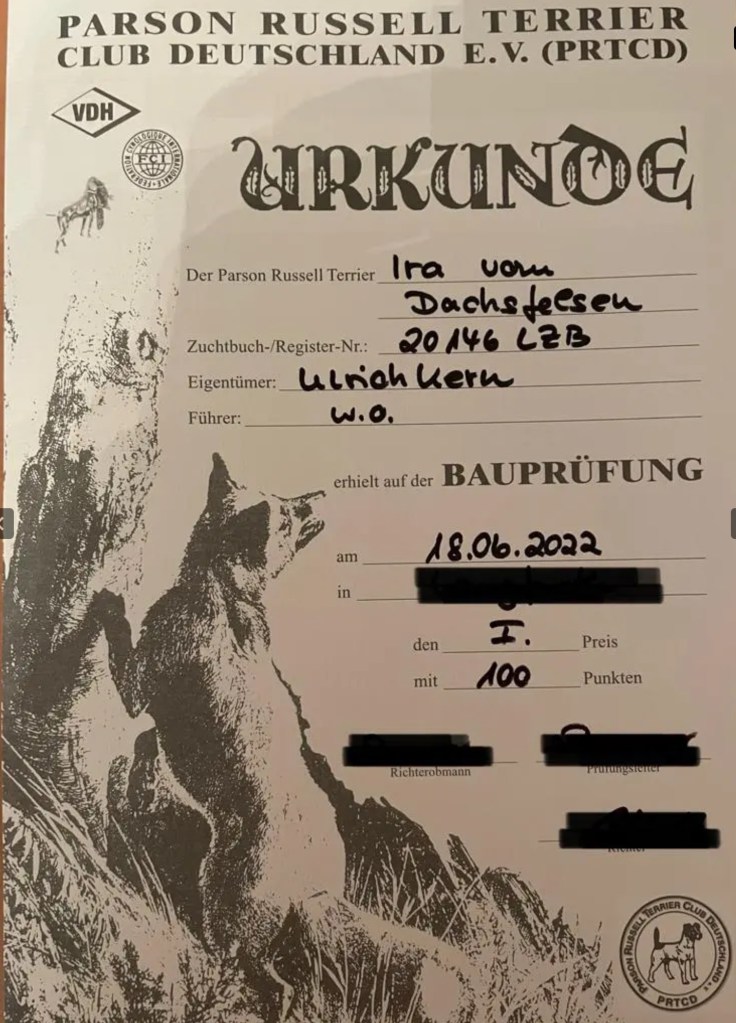 PARSON RUSSELL TERRIER
CLUB DEUTSCHLAND E.V. (PRTCD)
VDH
FEDERATION CYNOLOGIQUE INTERNATIONALE
FCI
URKUNDE
Der Parson Russell Terrier Ira vom
Dachsfelsen
Zuchtbuch-/Register-Nr.: 20146 LZB
Eigentümer: Ulrich Kern
Führer: w.o.
erhielt auf der BAUPRÜFUNG
am 18.06.2022
in
den I. Preis
mit 100 Punkten
Richterobmann Prüfungsleiter
Richter
PARSON RUSSELL TERRIER CLUB DEUTSCHLAND e.V.
PRTCD